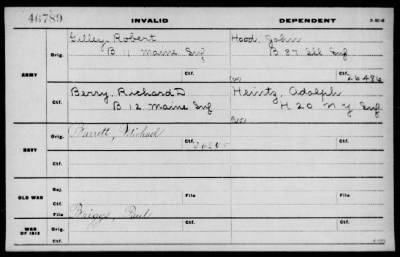 46789
INVALID
DEPENDENT
ARMY
Orig.
Gilley, Robert
B 11 Maine Inf
Hood, John
B 87 Ill Inf
Ctf.
26486
Ctf.
Berry, Richard D
B 12 Maine Inf
Heintz, Adolph
H 20 N Y Inf
NAVY
Orig.
Barrett, Michael
Ctf.
Ctf.
Ctf.
OLD WAR
Ctf.
File
File
Briggs, Paul
WAR OF 1812
Orig.
Ctf.
Ctf.
Ctf.